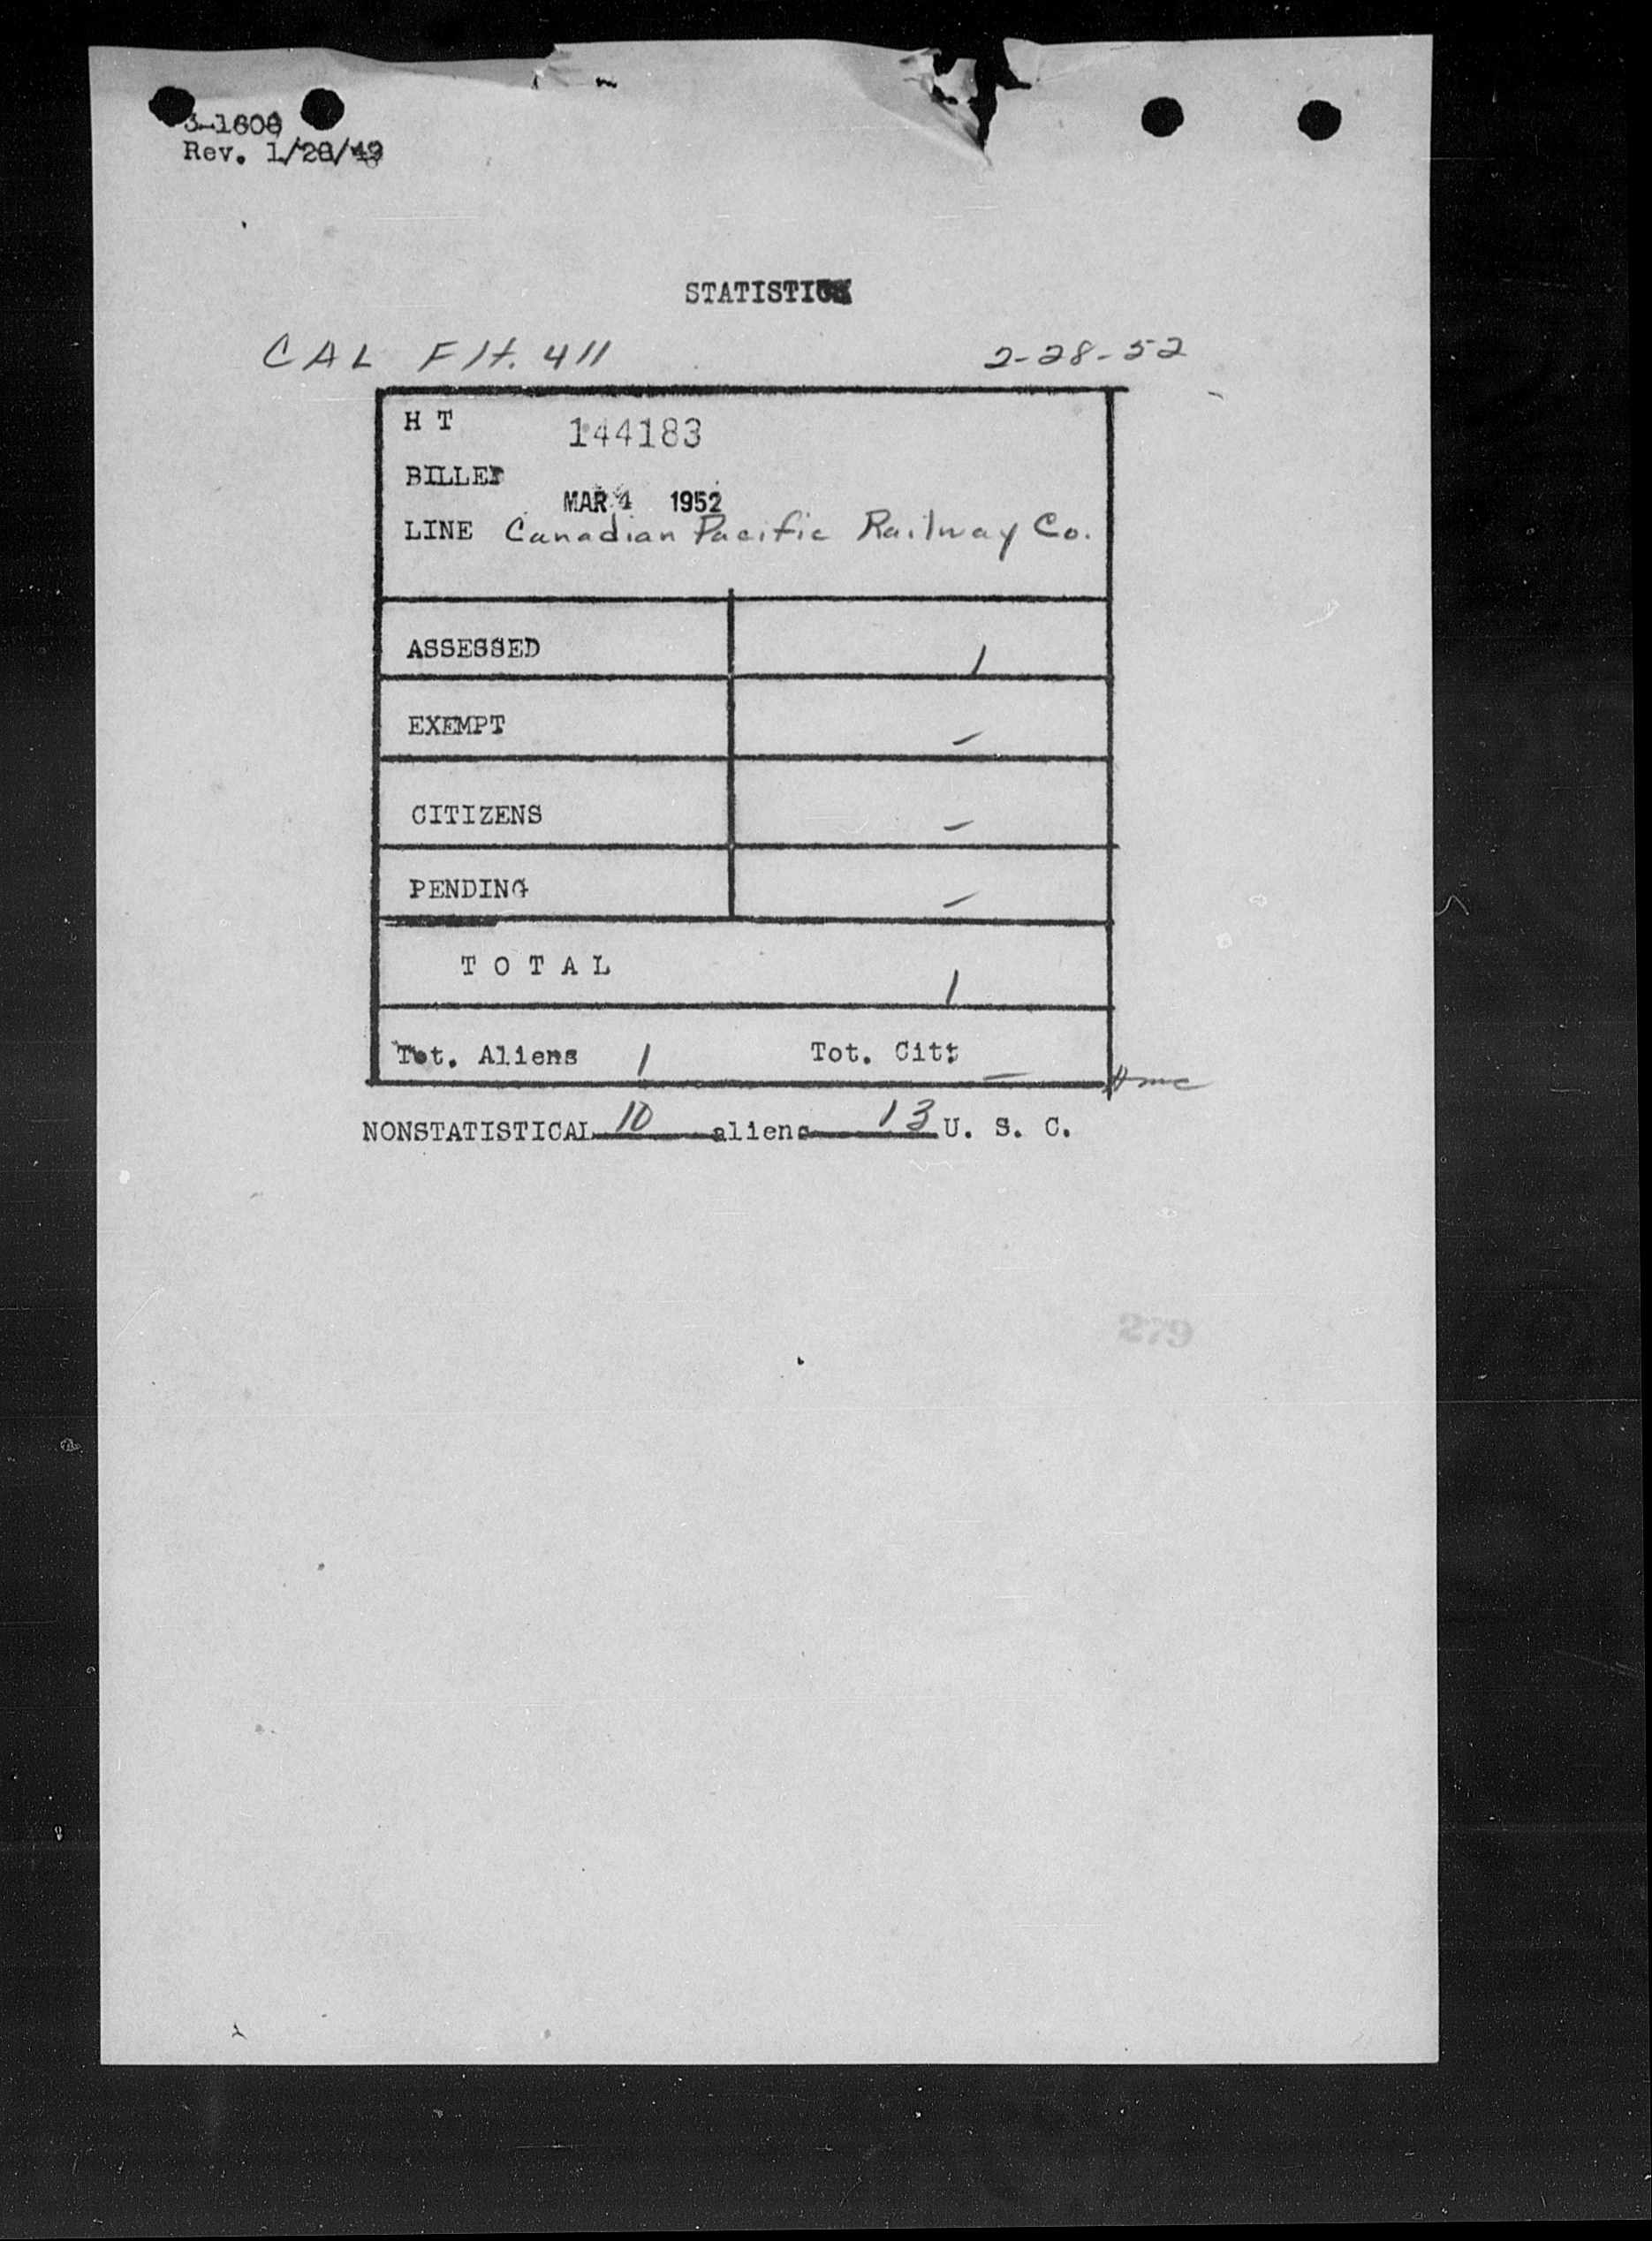 3-1608
Rev. 1/28/49
STATISTICS
CAL Flt. 411 2-28-52
H T 144183
BILLED
MAR 4 1952
LINE Canadian Pacific Railway Co.
ASSESSED 1
EXEMPT –
CITIZENS –
PENDING –
T O T A L 1
Tot. Aliens 1 Tot. Cit: –
NONSTATISTICAL 10 aliens 13 U. S. C.
279